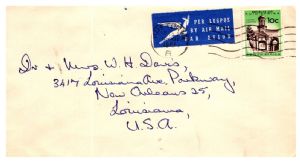 PER LUGPOS
BY AIR MAIL
PAR AVION
10c
Dr & Mrs W. H. Davis,
3417 Louisiana Ave. Parkway,
New Orleans 25,
Louisiana,
U.S.A.